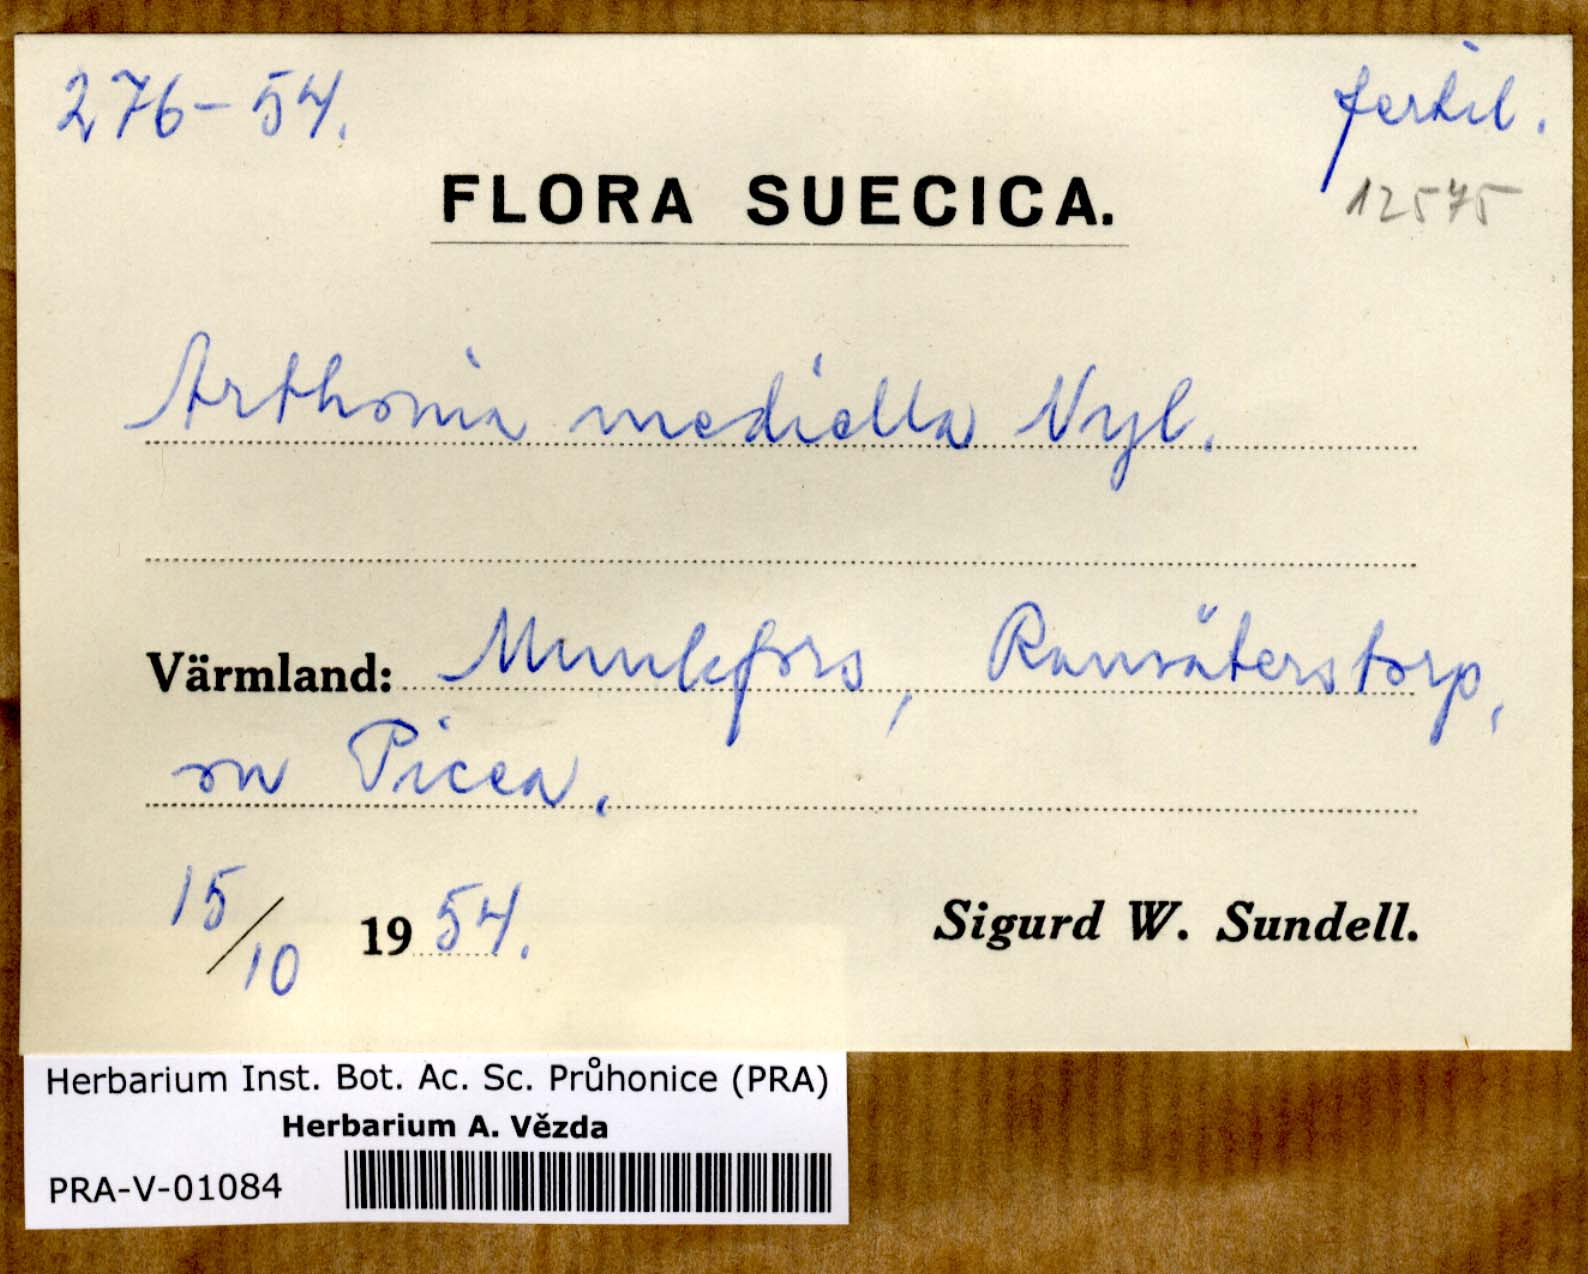 276-54.
fertil.
FLORA SUECICA.
12575
Arthonia mediella Nyl.
Värmland: Munkfors, Ransäterstorp,
on Picea.
15/10 1954.
Sigurd W. Sundell.
Herbarium Inst. Bot. Ac. Sc. Průhonice (PRA)
Herbarium A. Vězda
PRA-V-01084